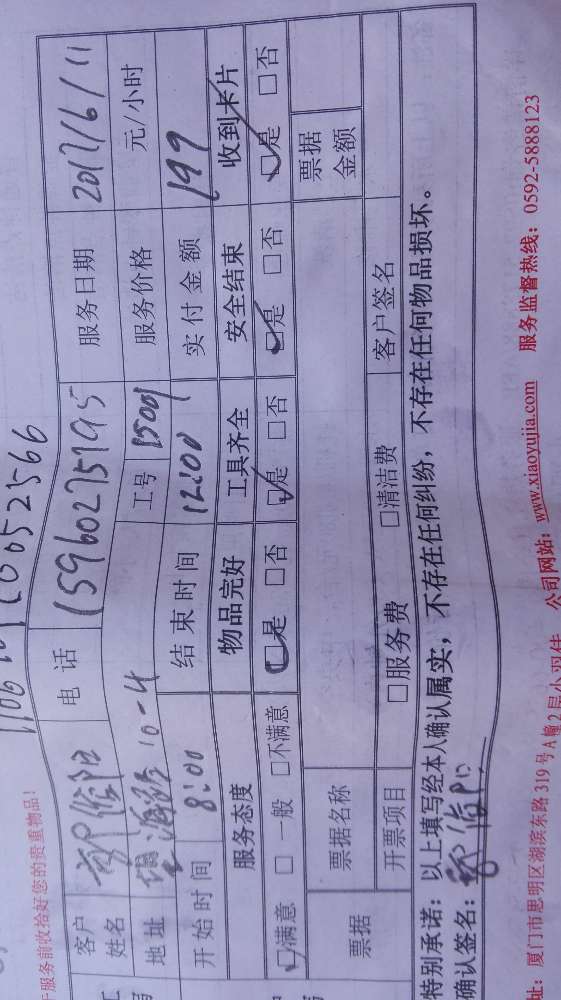 于服务前收拾好您的贵重物品!
客户姓名 电话 15960275195 服务日期 2017/6/11
地址 望海路10-4 工号 15001 服务价格 元/小时
开始时间 8:00 结束时间 12:00 实付金额 199
服务态度 物品完好 工具齐全 安全结束 收到卡片
☑满意 □一般 □不满意 ☑是 □否 ☑是 □否 ☑是 □否 ☑是 □否
票据 票据名称 票据金额
开票项目 □服务费 □清洁费 客户签名
特别承诺：以上填写经本人确认属实，不存在任何纠纷，不存在任何物品损坏。
确认签名：
址：厦门市思明区湖滨东路319号A幢2层小羽佳 公司网站：www.xiaoyujia.com 服务监督热线：0592-5888123